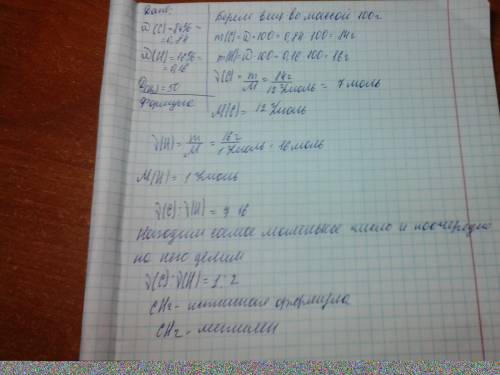 Дано:
ω(C)=84%=
=0,84
ω(H)=16%=
=0,16
D(H₂)=50
Формула
Берем в-ву массой 100г.
m(C)=ω·100=0,84·100=84г
m(H)=ω·100=0,16·100=16г
ν(C)=m/M=84г/12г/моль=7 моль
M(C)=12г/моль
ν(H)=m/M=16г/1г/моль=16 моль
M(H)=1г/моль
ν(C):ν(H)=7:16
Находим самое маленькое число и поочередно
на него делим
ν(C):ν(H)=1:2
CH₂- истинная формула
CH₂-